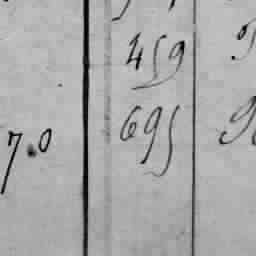 459
695
7.0